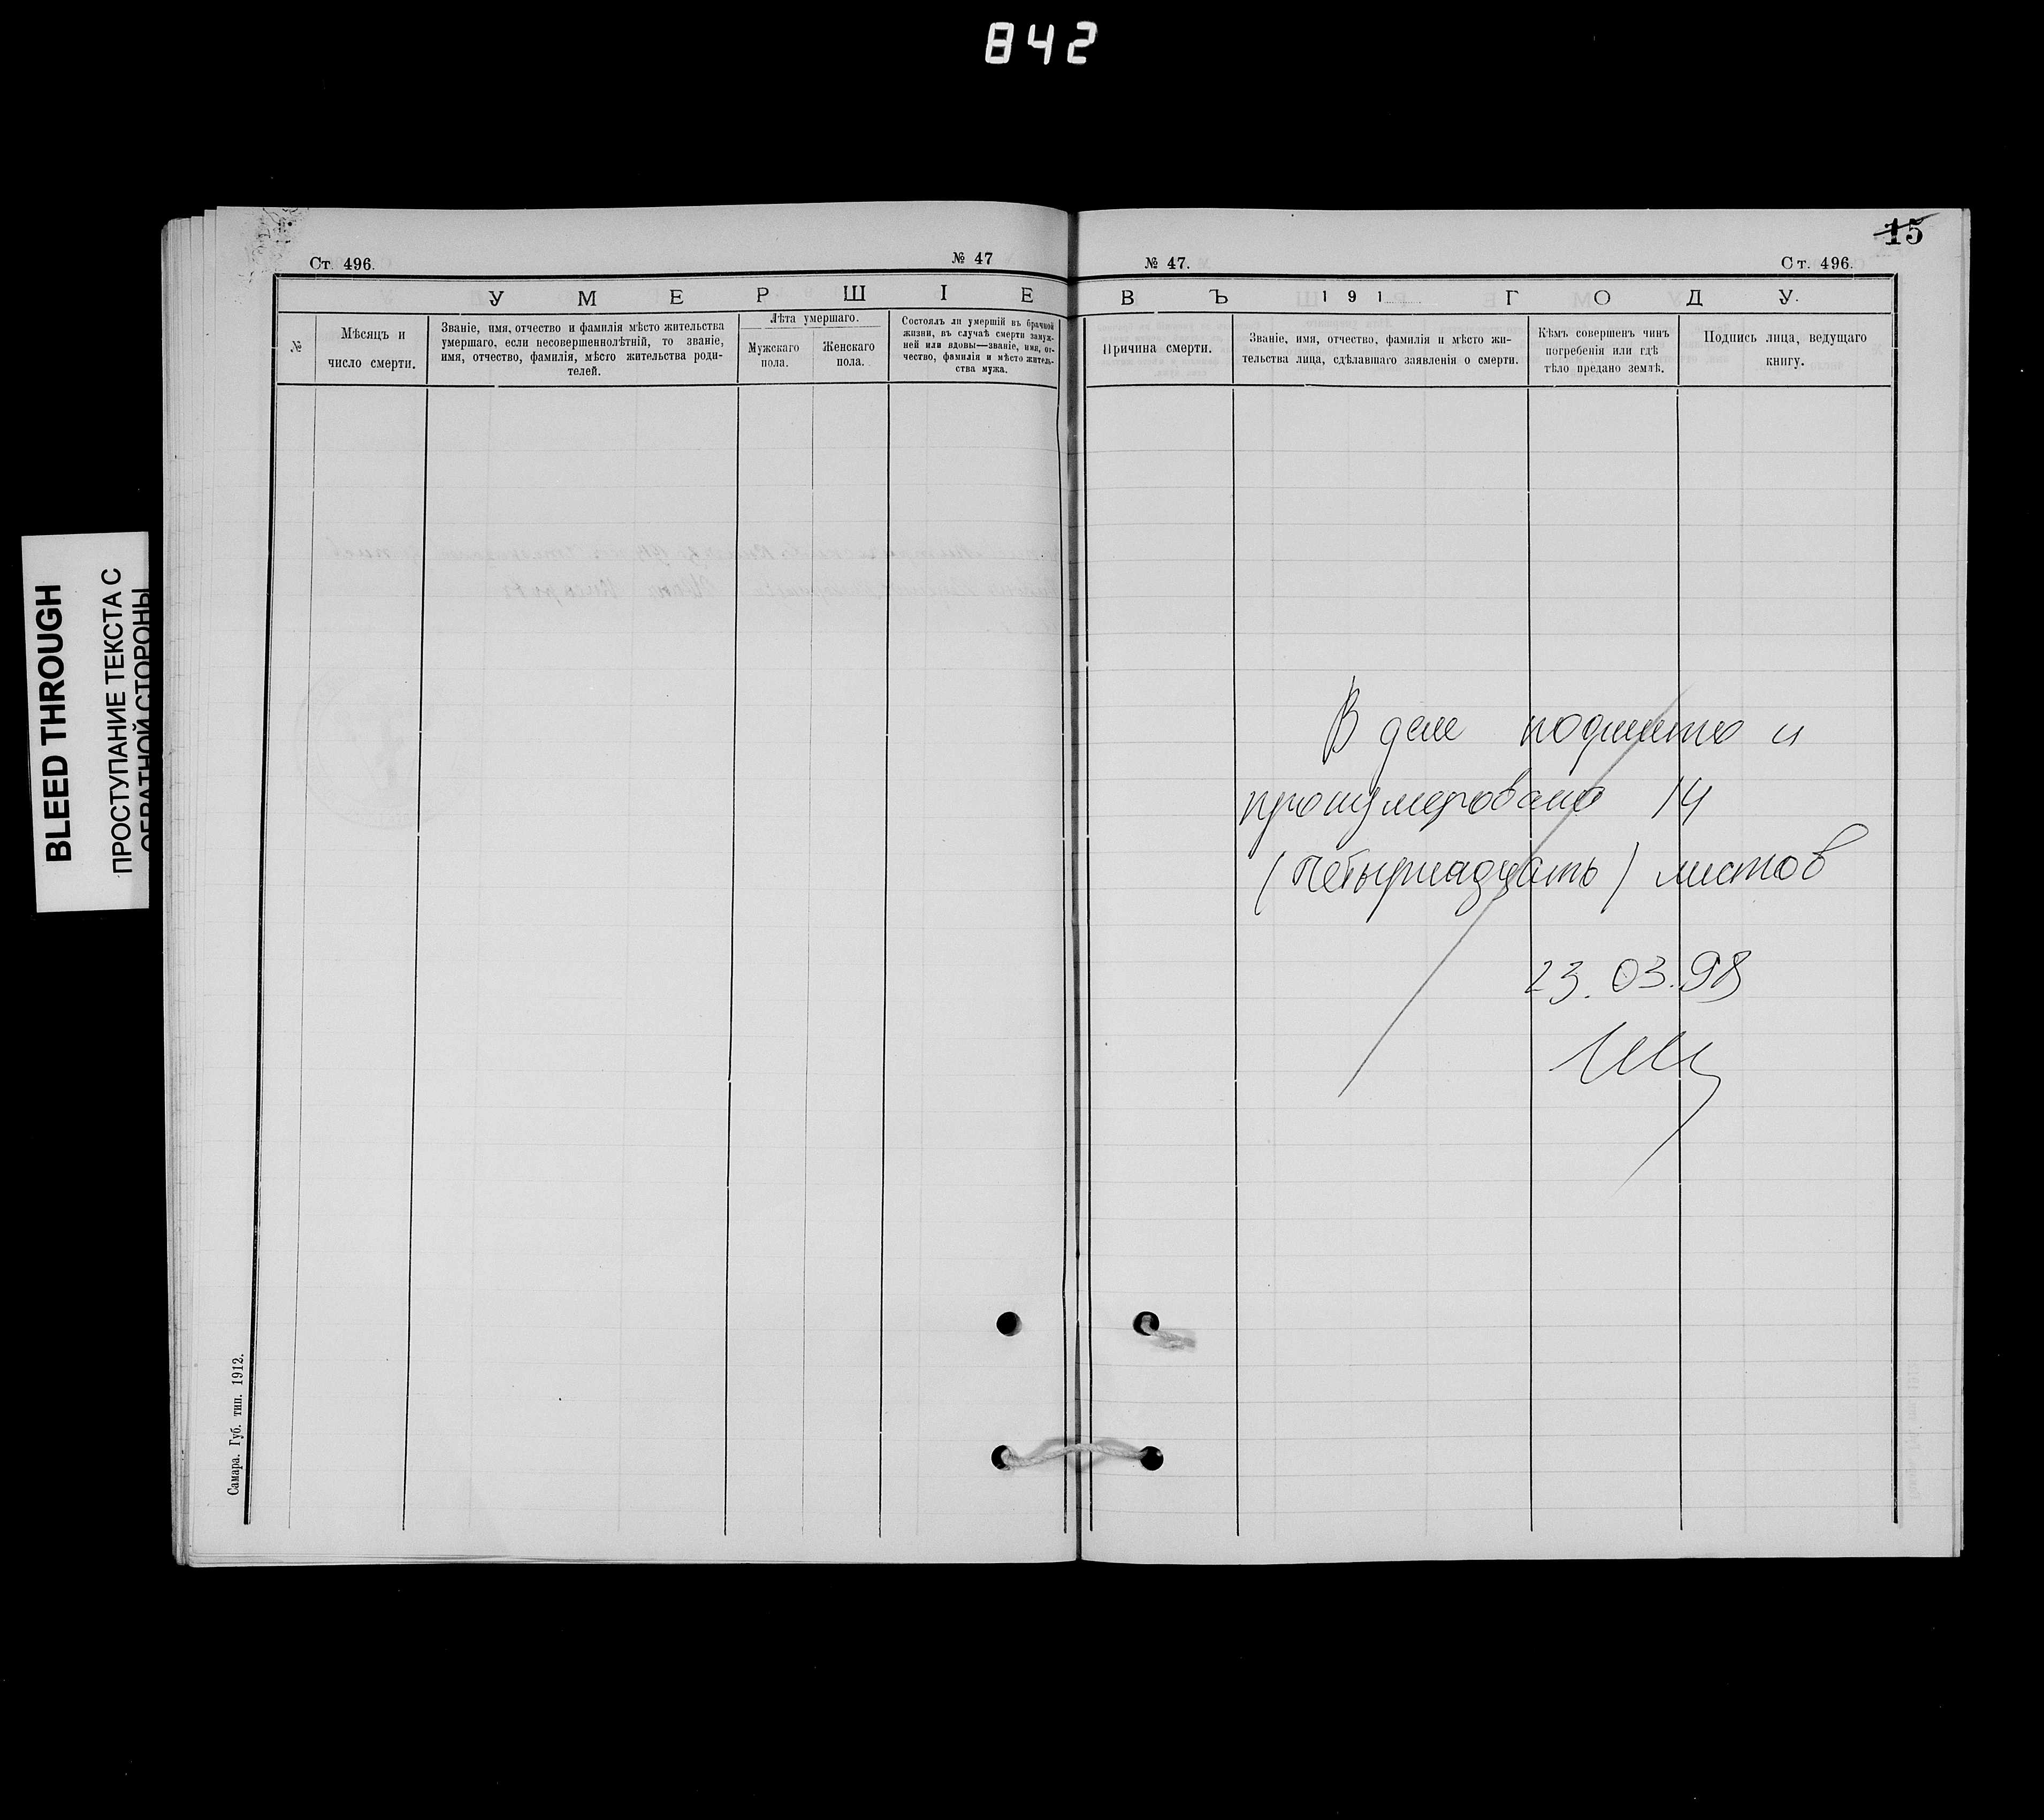 842
15
Ст. 496.
№ 47
№ 47.
Ст. 496.
УМЕРШІЕ
ВЪ 191 ГОДУ.
№
Мѣсяцъ и
число смерти.
Званіе, имя, отчество и фамилія мѣсто жительства
умершаго, если несовершеннолѣтній, то званіе,
имя, отчество, фамилія, мѣсто жительства роди-
телей.
Лѣта умершаго.
Мужскаго
пола.
Женскаго
пола.
Состоялъ ли умершій въ брачной
жизни, въ случаѣ смерти замуж-
ней или вдовы—званіе, имя, от-
чество, фамилія и мѣсто житель-
ства мужа.
Причина смерти.
Званіе, имя, отчество, фамилія и мѣсто жи-
тельства лица, сдѣлавшаго заявленія о смерти.
Кѣмъ совершенъ чинъ
погребенія или гдѣ
тѣло предано землѣ.
Подпись лица, ведущаго
книгу.
В деле подшито и
пронумеровано 14
(четырнадцать) листов
23.03.98
Самара. Губ. тип. 1912.
BLEED THROUGH
ПРОСТУПАНИЕ ТЕКСТА С
ОБРАТНОЙ СТОРОНЫ